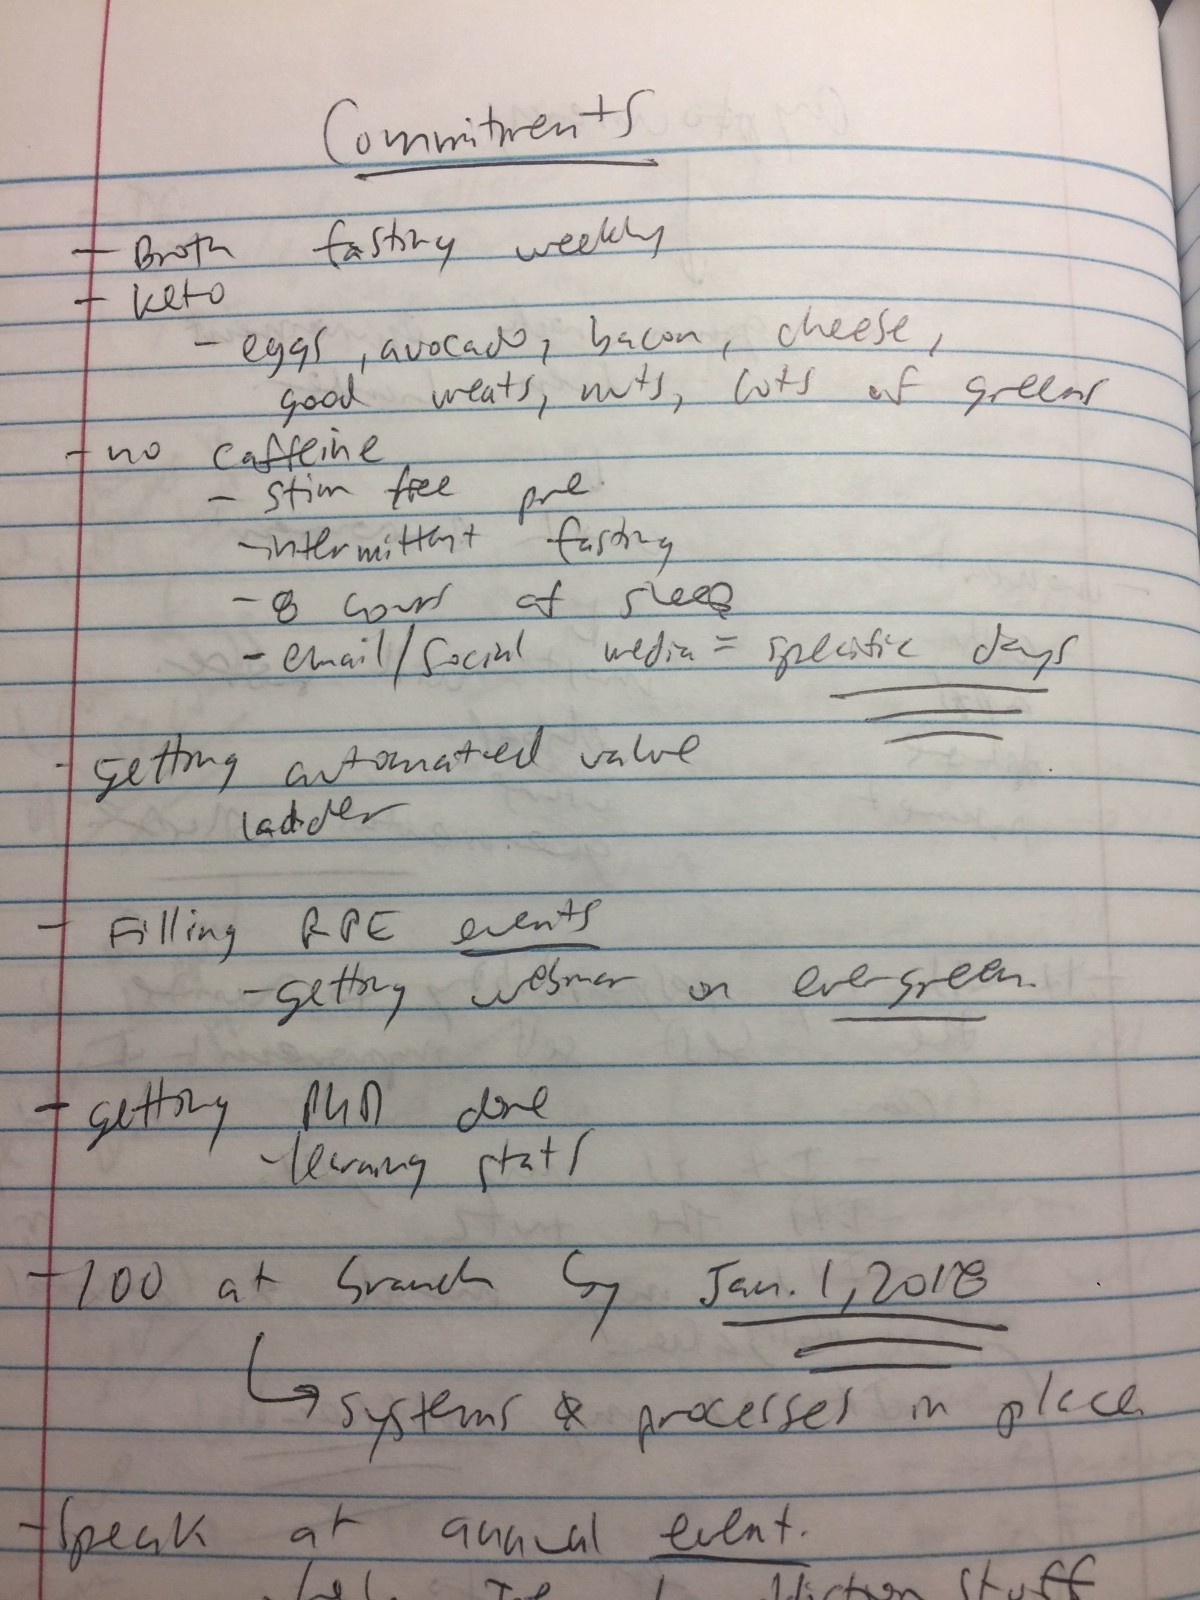 Commitments
- Broth fasting weekly
- Keto
- eggs, avocado, bacon, cheese,
good meats, nuts, lots of greens
- no caffeine
- stim free pre
- intermittent fasting
- 8 hours of sleep
- email/social media = specific days
- getting automated value
ladder
- Filling RPE events
- getting webinar on evergreen.
- getting PHD done
- learning stats
- 100 at branch by Jan. 1, 2018
↳ systems & processes in place
- Speak at annual event.
stuff